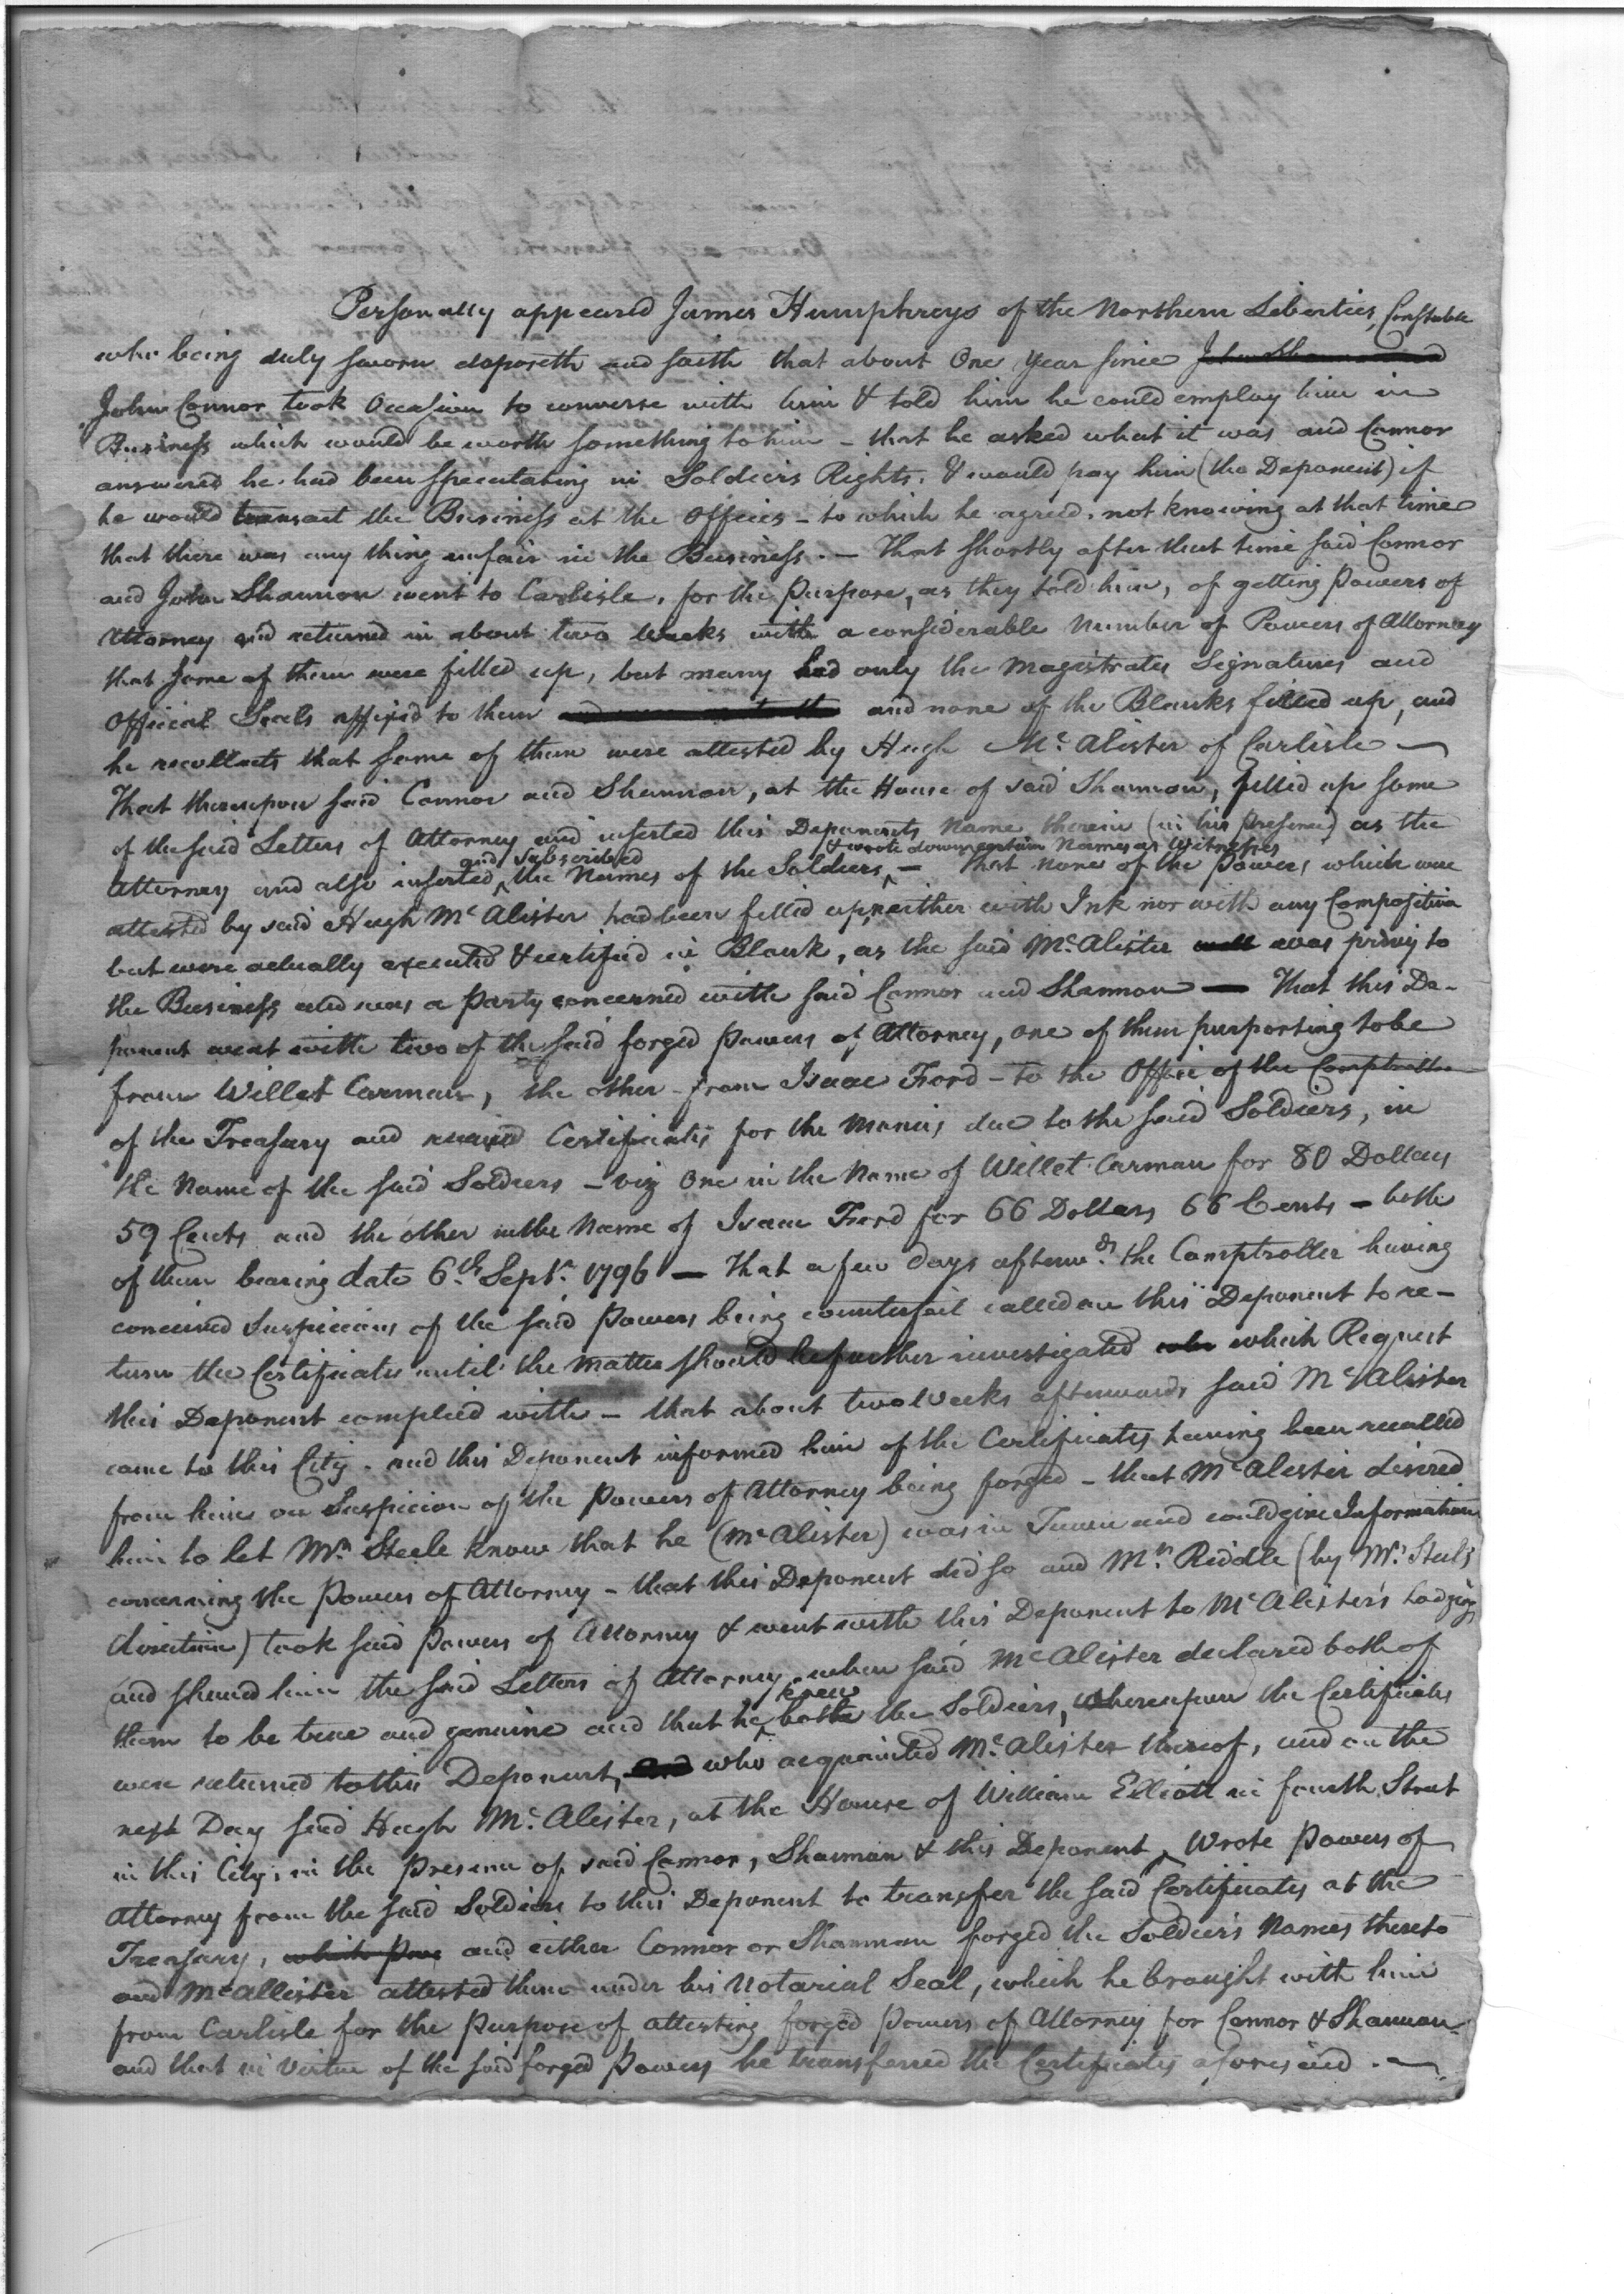 Personally appeared James Humphreys of the Northern Liberties, Constable
who being duly sworn deposeth and saith that about One Year since John Shannon
John Connor took Occasion to converse with him & told him he could employ him in
Business which would be worth something to him – that he asked what it was and Connor
answered he had been speculating in Soldiers Rights. & would pay him (the Deponent) if
he would transact the Business at the Offices – to which he agreed. not knowing at that time
that there was any thing unfair in the Business. — That shortly after that time said Connor
and John Shannon went to Carlisle, for the Purpose, as they told him, of getting Powers of
Attorney and returned in about two Weeks with a considerable Number of Powers of Attorney
that some of them were filled up, but many had only the Magistrates Signatures and
Official Seals affixed to them and none of the Blanks filled up, and
he recollects that some of them were attested by Hugh Mc. Alister of Carlisle —
That thereupon said Connor and Shannon, at the House of said Shannon, filled up some
of the said Letters of Attorney and inserted this Deponents Name therein (in his Presence) as the
and subscribed & wrote down certain Names as Witnesses
Attorney and also inserted ^ the Names of the Soldiers ^ — That none of the Powers which were
attested by said Hugh Mc Alister had been filled up, neither with Ink nor with any Composition
but were actually executed & certified in Blank, as the said Mc. Alister well was privy to
the Business and was a Party concerned with said Connor and Shannon — That this De-
ponent went with two of the said forged Powers of Attorney, one of them purporting to be
from Willet Carman, the other from Isaac Ford – to the Office of the Comptroller
of the Treasury and received Certificates for the Monies due to the said Soldiers, in
the Name of the said Soldiers – viz One in the Name of Willet Carman for 80 Dollars
59 Cents and the other in the Name of Isaac Ford for 66 Dollars 66 Cents – both
of them bearing date 6th. Septr. 1796 — That a few days afterwds. the Comptroller having
conceived Suspicions of the said Powers being counterfeit called on this Deponent to re-
turn the Certificates until the matter should be further investigated which Request
this Deponent complied with – that about two Weeks afterwards said Mc Alister
came to this City. and this Deponent informed him of the Certificates having been recalled
from him on Suspicion of the Powers of Attorney being forged – that Mc Alister desired
him to let Mr. Steele know that he (Mc Alister) was in Town and could give Information
concerning the Powers of Attorney – that this Deponent did so and Mr. Riddle (by Mr. Steels
direction) took said Powers of Attorney & went with this Deponent to Mc Alister's Lodgings
and shewed him the said Letters of Attorney, when said Mc Alister declared both of
knew
them to be true and genuine and that he ^ both the Soldiers, whereupon the Certificates
were returned to this Deponent, and who acquainted Mc. Alister thereof, and on the
next Day said Hugh Mc. Alister, at the House of William Elliott in fourth Street
in this City, in the Presence of said Connor, Shannon & this Deponent, Wrote Powers of
Attorney from the said Soldiers to this Deponent to transfer the said Certificates at the
Treasury, which Pow and either Connor or Shannon forged the Soldiers Names thereto
and Mc allister attested them under his Notarial Seal, which he brought with him
from Carlisle for the Purpose of attesting forged Powers of Attorney for Connor & Shannon
and that in Virtue of the said forged Powers he transferred the Certificates aforesaid. —